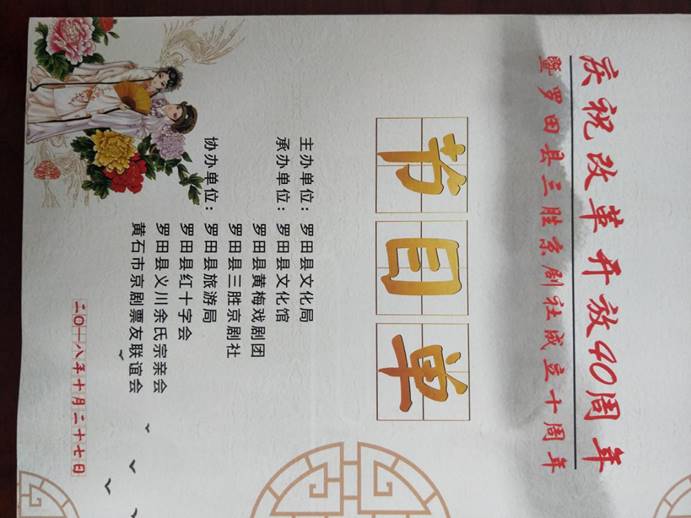 庆祝改革开放40周年
暨罗田县三胜京剧社成立十周年
节目单
主办单位：罗田县文化局
承办单位：罗田县文化馆
罗田县黄梅戏剧团
罗田县三胜京剧社
协办单位：罗田县旅游局
罗田县红十字会
罗田县义川余氏宗亲会
黄石市京剧票友联谊会
二〇一八年十月二十七日